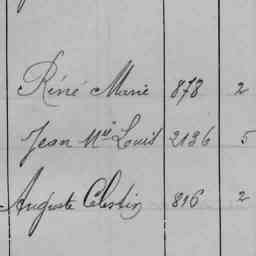 Réné Marie 878 2
Jean Mie Louis 2136 5
Auguste Célestin 816 2